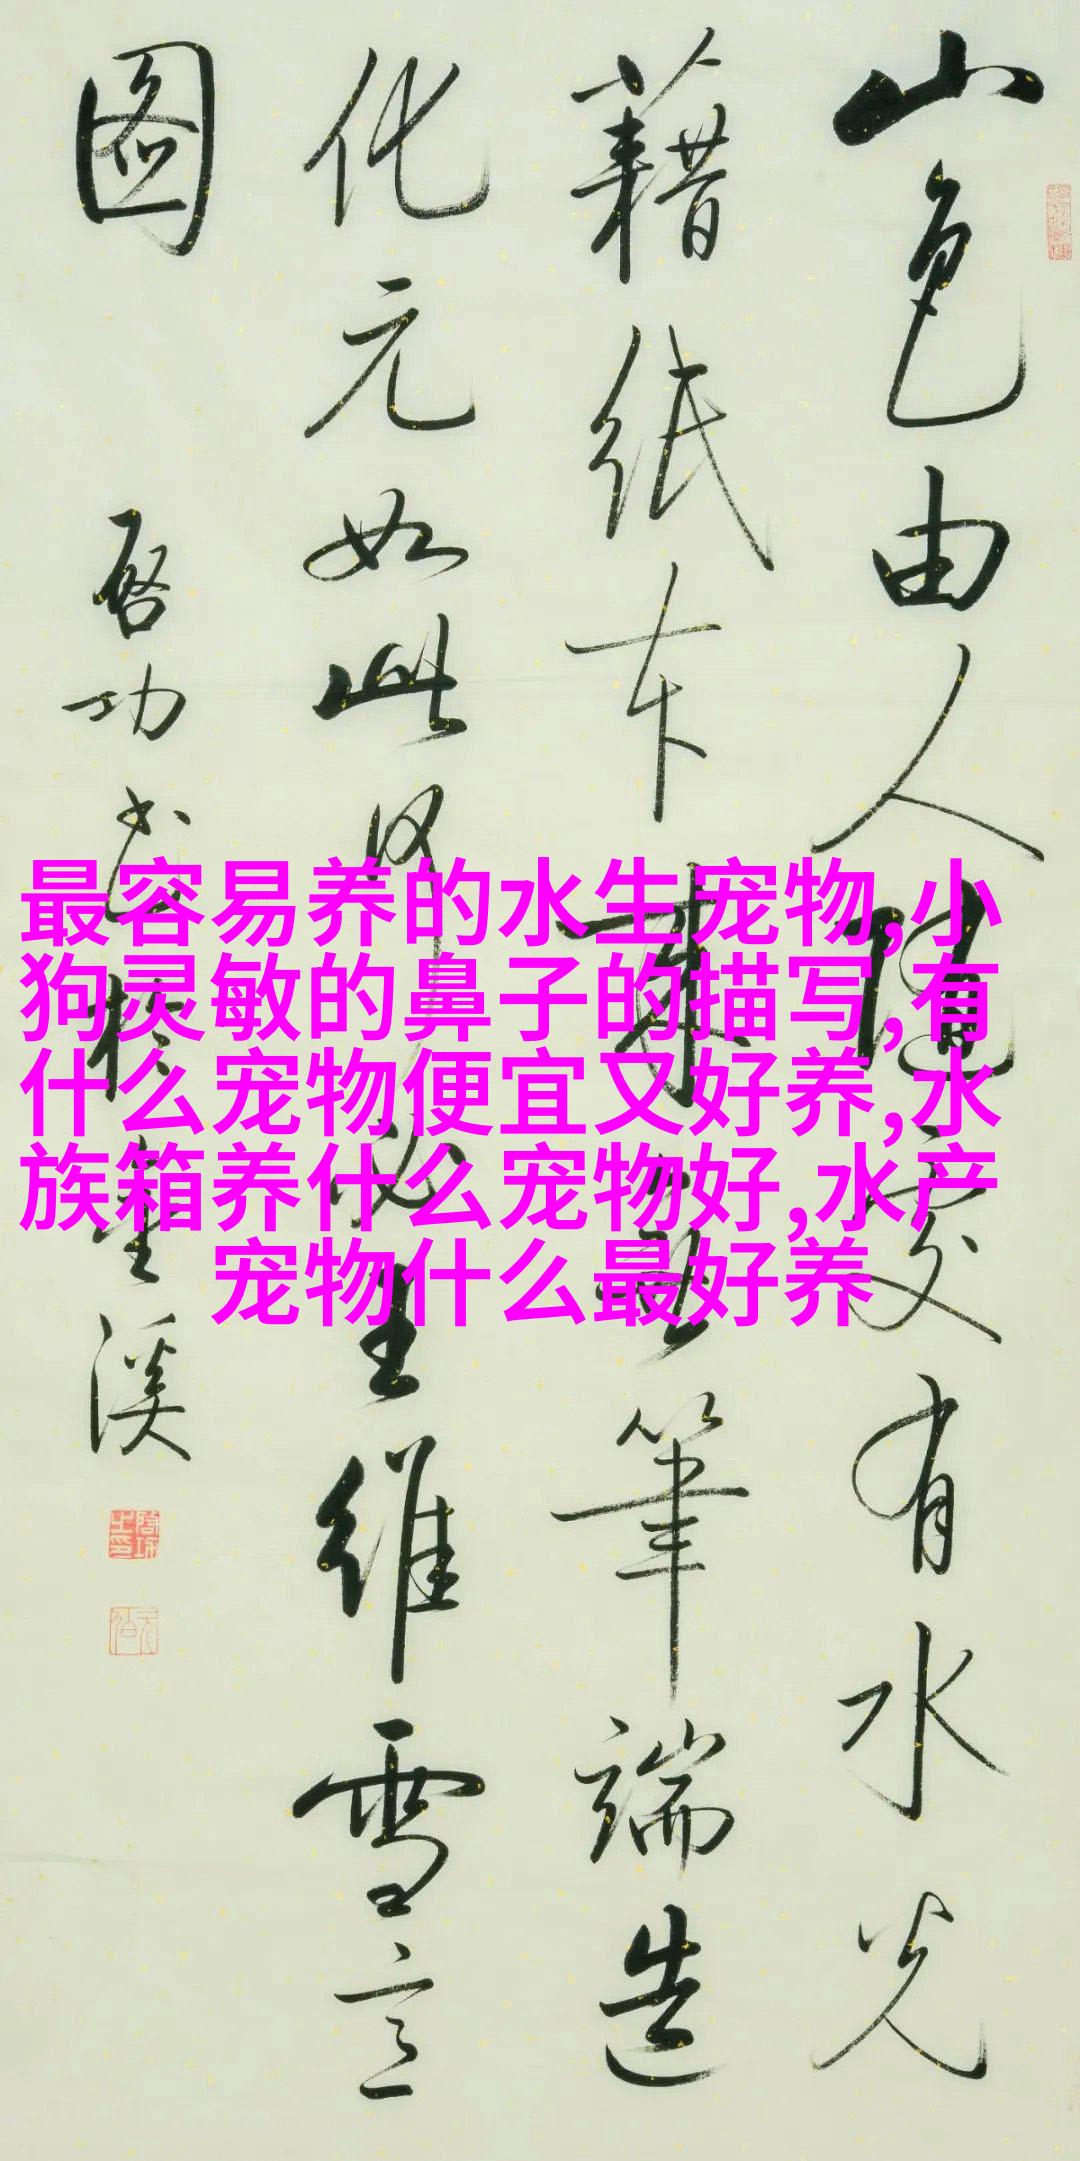 最容易养的水生宠物,小
狗灵敏的鼻子的描写,有
什么宠物便宜又好养,水
族箱养什么宠物好,水产
宠物什么最好养
山色由人隨處有水光
藉紙本來無筆端造
化元如此何必王維雪意
圖
啟功書於
溪